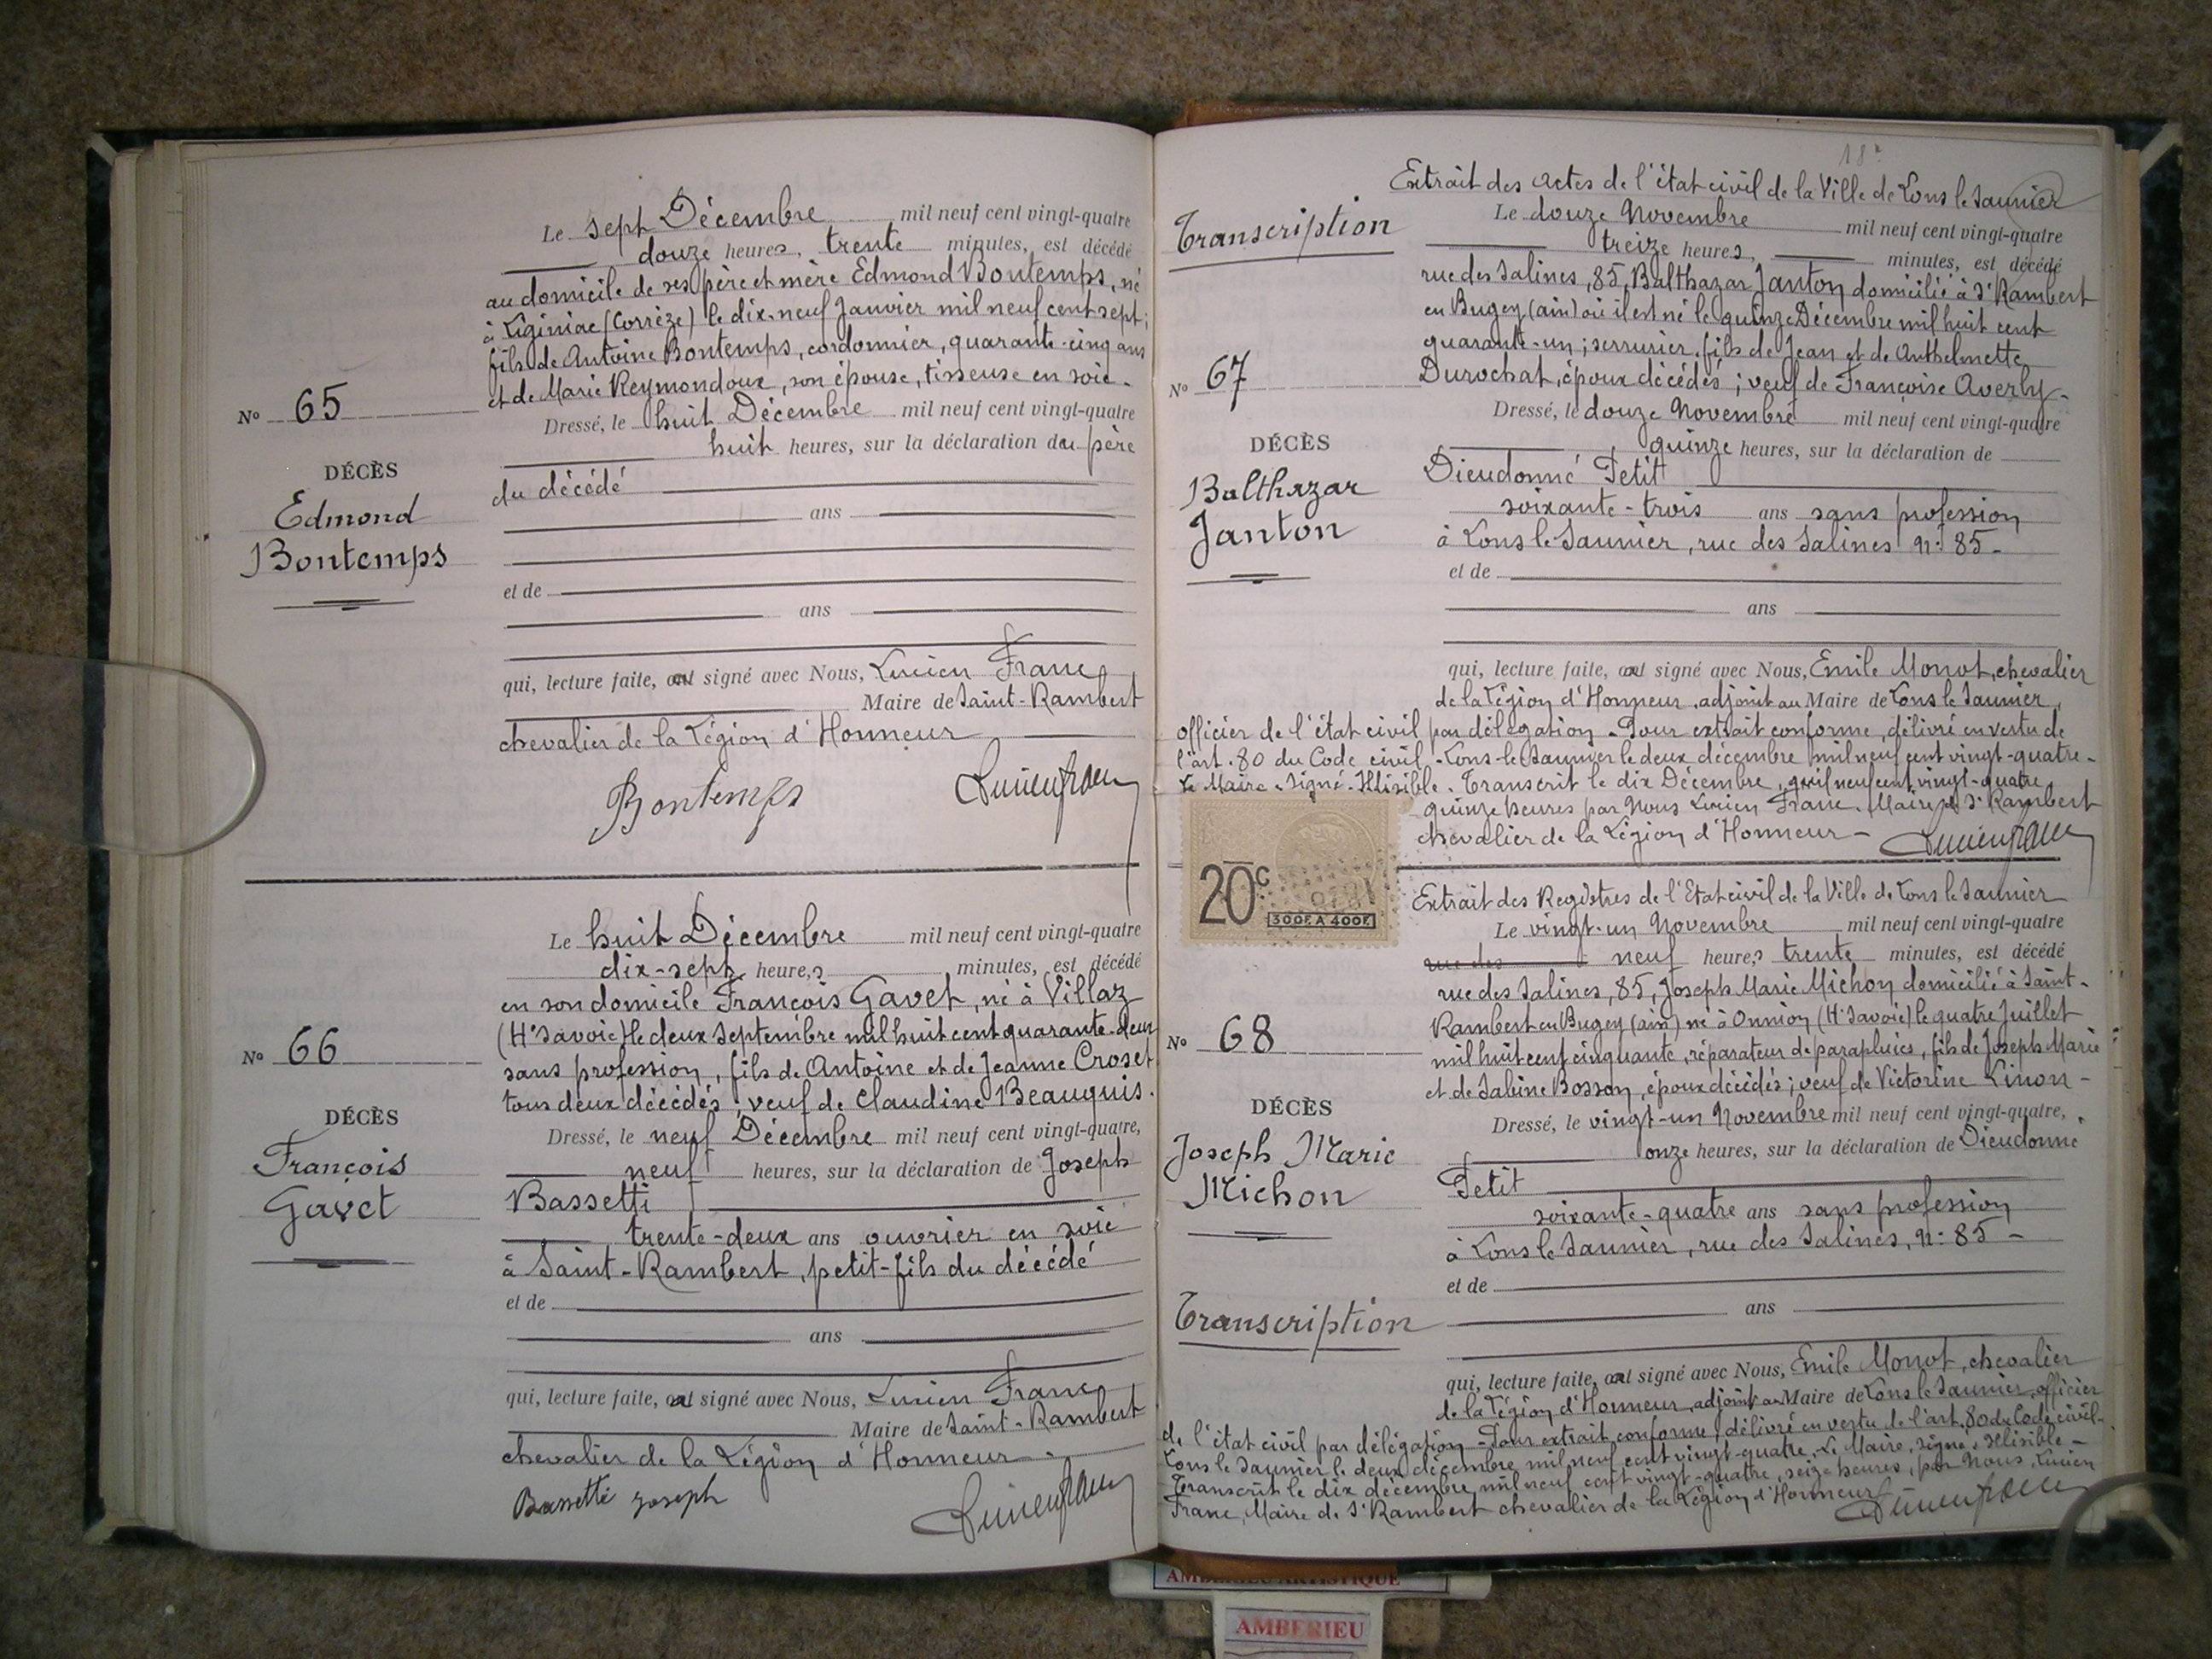 Le sept Décembre mil neuf cent vingt-quatre
douze heures, trente minutes, est décédé
au domicile de ses père et mère Edmond Bontemps, né
à Liginiac (Corrèze) le dix-neuf Janvier mil neuf cent sept;
fils de Antoine Bontemps, cordonnier, quarante-cinq ans
et de Marie Reymondoux, son épouse, tisseuse en soie.
No 65
Dressé, le huit Décembre mil neuf cent vingt-quatre
huit heures, sur la déclaration du père
DÉCÈS
Edmond
Bontemps
du décédé
ans
et de
ans
qui, lecture faite, a signé avec Nous, Lucien Franc
Maire de Saint-Rambert
chevalier de la Légion d'Honneur
Bontemps Lucien Franc
Le huit Décembre mil neuf cent vingt-quatre
dix-sept heures minutes, est décédé
en son domicile François Gavet, né à Villaz
(Hte Savoie) le deux Septembre mil huit cent quarante-deux
sans profession, fils de Antoine et de Jeanne Croset
tous deux décédés; veuf de Claudine Beauquis.
No 66
Dressé, le neuf Décembre mil neuf cent vingt-quatre,
neuf heures, sur la déclaration de Joseph
DÉCÈS
François
Gavet
Bassetti
trente-deux ans ouvrier en soie
à Saint-Rambert, petit-fils du décédé
et de
ans
qui, lecture faite, a signé avec Nous, Lucien Franc
Maire de Saint-Rambert
chevalier de la Légion d'Honneur
Bassetti Joseph Lucien Franc
Extrait des actes de l'état civil de la Ville de Lons le Saunier
Transcription
Le douze Novembre mil neuf cent vingt-quatre
treize heures, minutes, est décédé
rue des Salines, 85, Balthazar Janton domicilié à St Rambert
en Bugey (ain) où il est né le quinze Décembre mil huit cent
quarante-un; serrurier, fils de Jean et de Anthelmette
Durochat, époux décédés; veuf de Françoise Averly.
No 67
Dressé, le douze Novembre mil neuf cent vingt-quatre
quinze heures, sur la déclaration de
DÉCÈS
Balthazar
Janton
Dieudonné Petit
soixante-trois ans sans profession
à Lons le Saunier, rue des Salines no 85-
et de
ans
qui, lecture faite, a signé avec Nous, Emile Monot, chevalier
de la Légion d'Honneur, adjoint au Maire de Lons le Saunier,
officier de l'état civil par délégation. Pour extrait conforme, délivré en vertu de
l'art. 80 du Code civil. Lons-le-Saunier le deux décembre mil neuf cent vingt-quatre-
Le Maire. Signé. Illisible. Transcrit le dix Décembre, mil neuf cent vingt-quatre
quinze heures par Nous Lucien Franc, Maire de St Rambert
chevalier de la Légion d'Honneur - Lucien Franc
20c
300F. A 400F.
Extrait des Registres de l'Etat civil de la Ville de Lons le Saunier
Le vingt-un Novembre mil neuf cent vingt-quatre
rue des neuf heures trente minutes, est décédé
rue des Salines, 85, Joseph Marie Michon domicilié à Saint-
Rambert en Bugey (ain) né à Onnion (Hte Savoie) le quatre Juillet
mil huit cent cinquante, réparateur de parapluies, fils de Joseph Marie
et de Sabine Bosson, époux décédés; veuf de Victorine Linon-
No 68
Dressé, le vingt-un Novembre mil neuf cent vingt-quatre,
onze heures, sur la déclaration de Dieudonné
DÉCÈS
Joseph Marie
Michon
Petit
soixante-quatre ans sans profession
à Lons le Saunier, rue des Salines, no 85-
et de
ans
Transcription
qui, lecture faite, a signé avec Nous, Emile Monot, chevalier
de la Légion d'Honneur, adjoint au Maire de Lons le Saunier, officier
de l'état civil par délégation - Pour extrait conforme, délivré en vertu de l'art. 80 du Code civil-
Lons le Saunier le deux décembre mil neuf cent vingt-quatre. Le Maire, signé: Illisible -
Transcrit le dix décembre mil neuf cent vingt-quatre, seize heures, par Nous, Lucien
Franc, Maire de St Rambert chevalier de la Légion d'Honneur Lucien Franc
AMBERIEU ARTISTIQUE
AMBERIEU